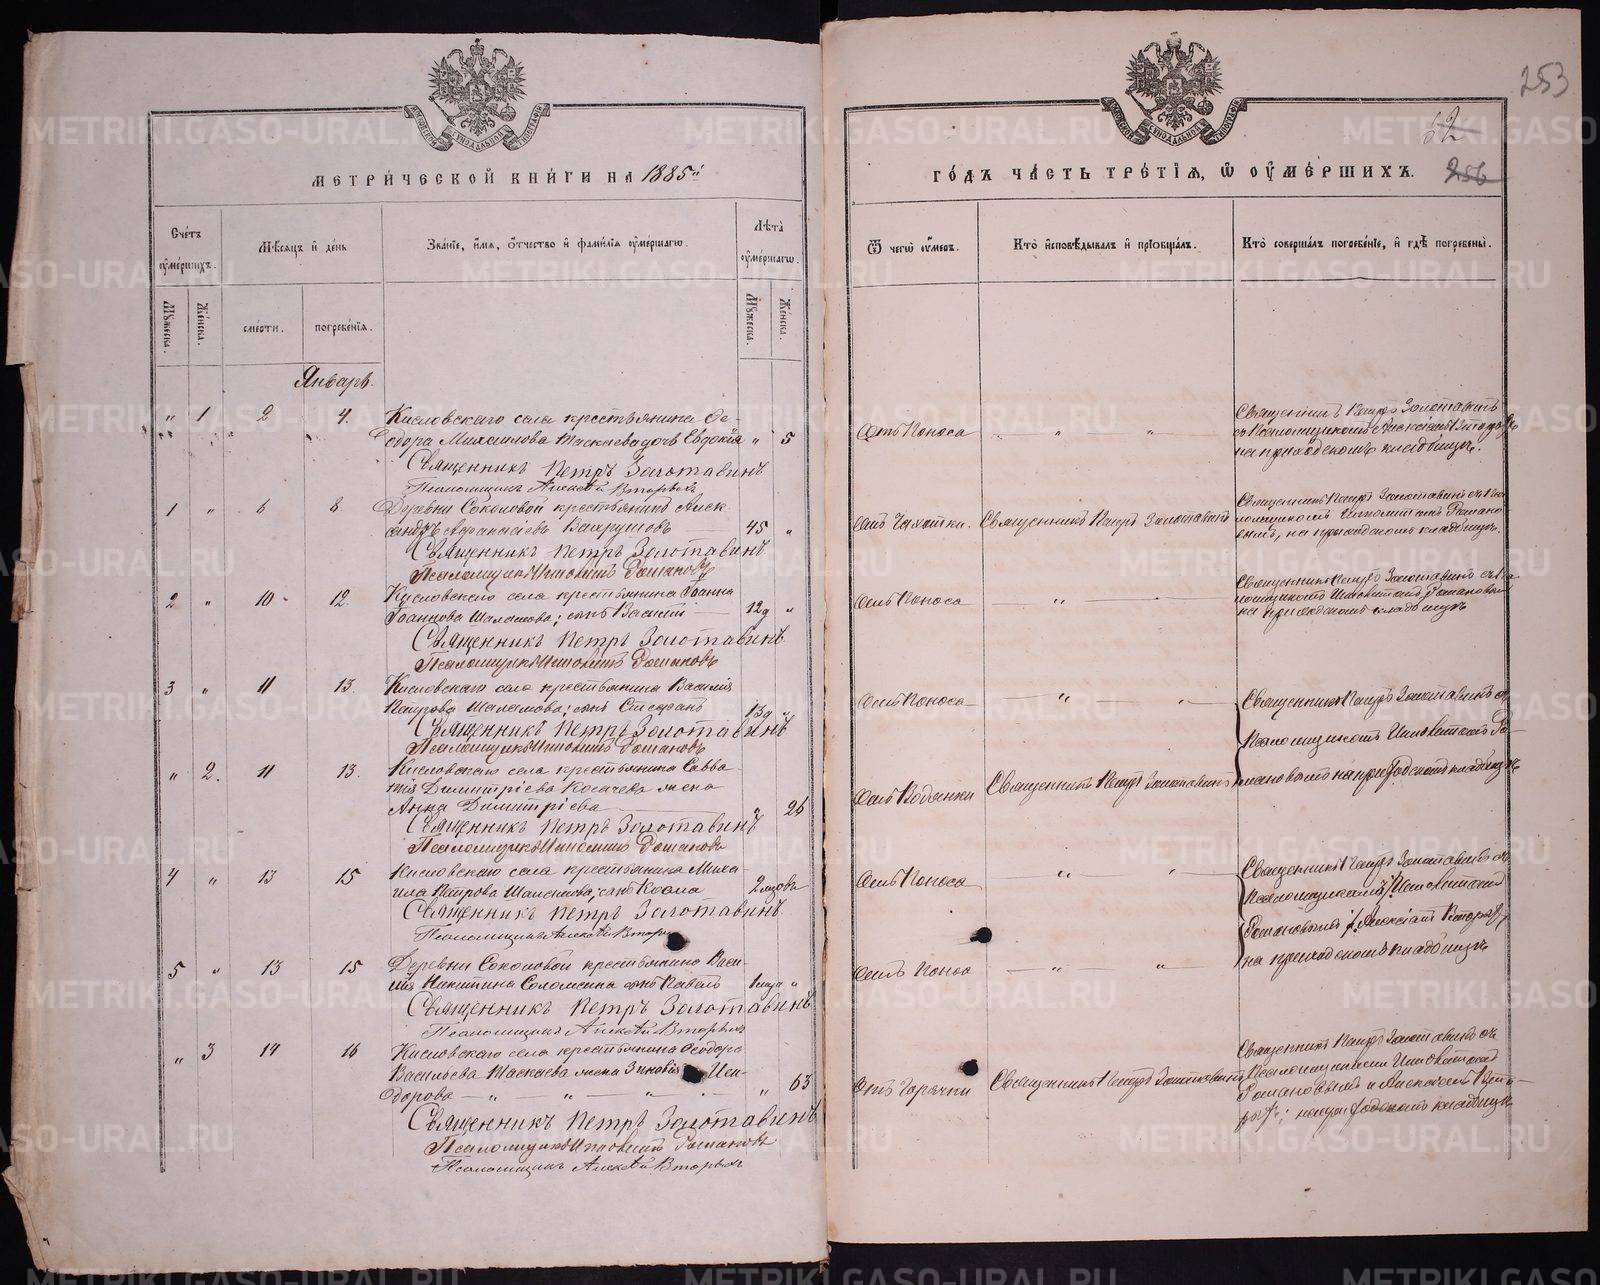 МЕТРИ́ЧЕСКОЙ КНИ́ГИ НА 1885й
Сче́тъ ᲂу҆ме́ршихъ.
Мѣ́сяцъ и҆ де́нь
Зва́нїе, и҆́мя, ѻ҆́тчество и҆ фами́лїя ᲂу҆ме́ршагѡ.
Лѣ́та ᲂу҆ме́ршагѡ.
Мꙋ́жеска.
Же́нска.
сме́рти.
погребе́нїя.
Мꙋ́жеска.
Же́нска.
Январь.
" 1 2 4. Кисловскаго села крестьянина Ѳе-
одора Михаилова Таскаева дочь Евдокія " 5
Священникъ Петръ Золотавинъ
Псаломщикъ Алексѣй Вторыхъ
1 " 6 8. Деревни Соколовой крестьянинъ Алек-
сандръ Аѳанасіевъ Вахрушовъ 45 "
Священникъ Петръ Золотавинъ
Псаломщикъ Ипполитъ Романовъ
2 " 10 12. Кисловскаго села крестьянина Іоанна
Іоаннова Шаламова, сынъ Василій 12д "
Священникъ Петръ Золотавинъ
Псаломщикъ Ипполитъ Романовъ
3 " 11 13. Кисловскаго села крестьянина Василія
Петрова Шаламова; сынъ Стефанъ 13д "
Священникъ Петръ Золотавинъ
Псаломщикъ Ипполитъ Романовъ
" 2. 11 13. Кисловскаго села крестьянина Савва-
тія Димитріева Косачева жена
Анна Димитріева " 26
Священникъ Петръ Золотавинъ
Псаломщикъ Ипполитъ Романовъ
4 " 13 15 Кисловскаго села крестьянина Миха-
ила Петрова Шаламова, сынъ Косма 2 мцовъ
Священникъ Петръ Золотавинъ
Псаломщикъ Алексѣй Втор
5 " 13 15 Деревни Соколовой крестьянина Васи-
лія Никитина Соломеина сынъ Павелъ 1 мца "
Священникъ Петръ Золотавинъ
Псаломщикъ Алексѣй Вторыхъ
" 3 14 16 Кисловскаго села крестьянина Ѳеодора
Васильева Таскаева жена Зиновія Иси-
дорова " " " " 63
Священникъ Петръ Золотавинъ
Псаломщикъ Ипполитъ Романовъ
Псаломщикъ Алексѣй Вторыхъ
253
62
256
ГО́ДЪ ЧА́СТЬ ТРЕ́ТЇѦ, Ѡ҆ ОУ҆МЕ́РШИХЪ.
Ѿ чегѡ̀ ᲂу҆́меръ.
Кто̀ и҆сповѣ́дывалъ и҆ прїѻбща́лъ.
Кто̀ соверша́лъ погребе́нїе, и҆ гдѣ̀ погребены̀.
Отъ Поноса " "
Священникъ Петръ Золотавинъ
съ Псаломщикомъ Алексѣемъ Вторыхъ
на приходскомъ кладбищѣ.
Отъ Чахотки. Священникъ Петръ Золотавинъ
Священникъ Петръ Золотавинъ съ Пса-
ломщикомъ Ипполитомъ Романо-
вымъ, на приходскомъ кладбищѣ.
Отъ Поноса "
Священникъ Петръ Золотавинъ съ Пса-
ломщикомъ Ипполитомъ Романовымъ
на приходскомъ кладбищѣ
Отъ Поноса " "
Священникъ Петръ Золотавинъ съ
Псаломщикомъ Ипполитомъ Ро-
мановымъ на приходскомъ кладбищѣ
Отъ Водянки Священникъ Петръ Золотавинъ
Отъ Поноса " "
Священникъ Петръ Золотавинъ съ
Псаломщиками Ипполитомъ
Романовымъ и Алексѣемъ Вторыхъ
на приходскомъ кладбищѣ
Отъ Поноса " "
Отъ Горячки Священникъ Петръ Золотавинъ
Священникъ Петръ Золотавинъ съ
Псаломщиками Ипполитомъ
Романовымъ и Алексѣемъ Вто-
рыхъ; на приходскомъ кладбищѣ
METRIKI.GASO-URAL.RU